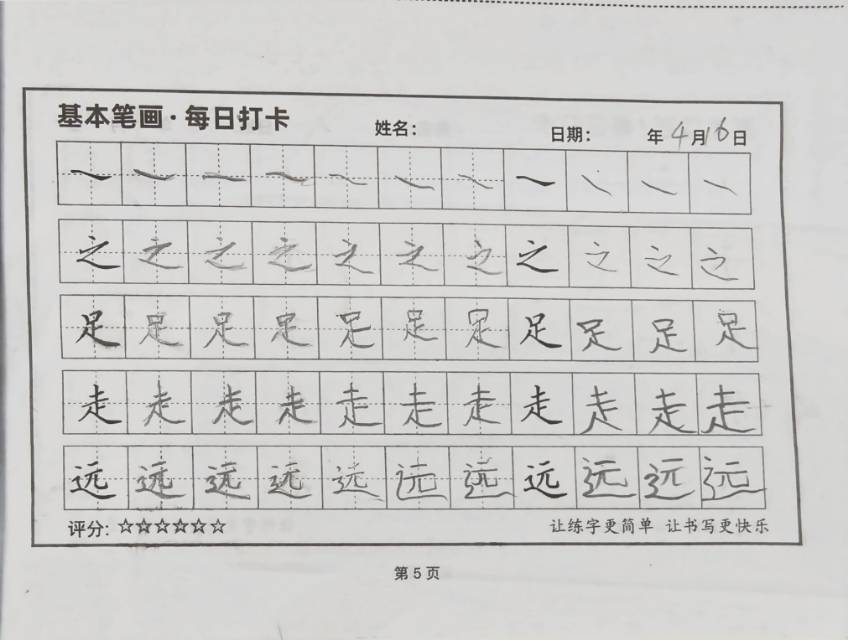 基本笔画·每日打卡 姓名： 日期： 年4月16日
之之之之之之之之之之之
足足足足足足足足足足足
走走走走走走走走走走走
远远远远远远远远远远远
评分：☆☆☆☆☆☆ 让练字更简单 让书写更快乐
第 5 页